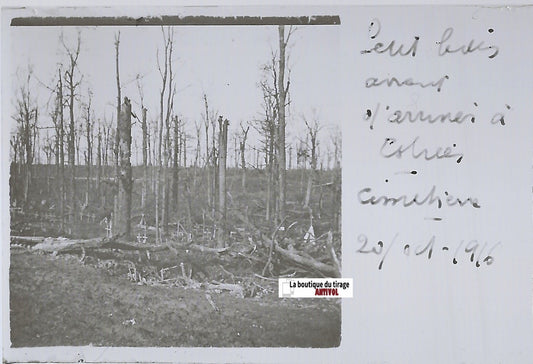 Petit bois
avant
d'arriver à
cimetière
20/oct-1916
La boutique du tirage
ANTIVOL